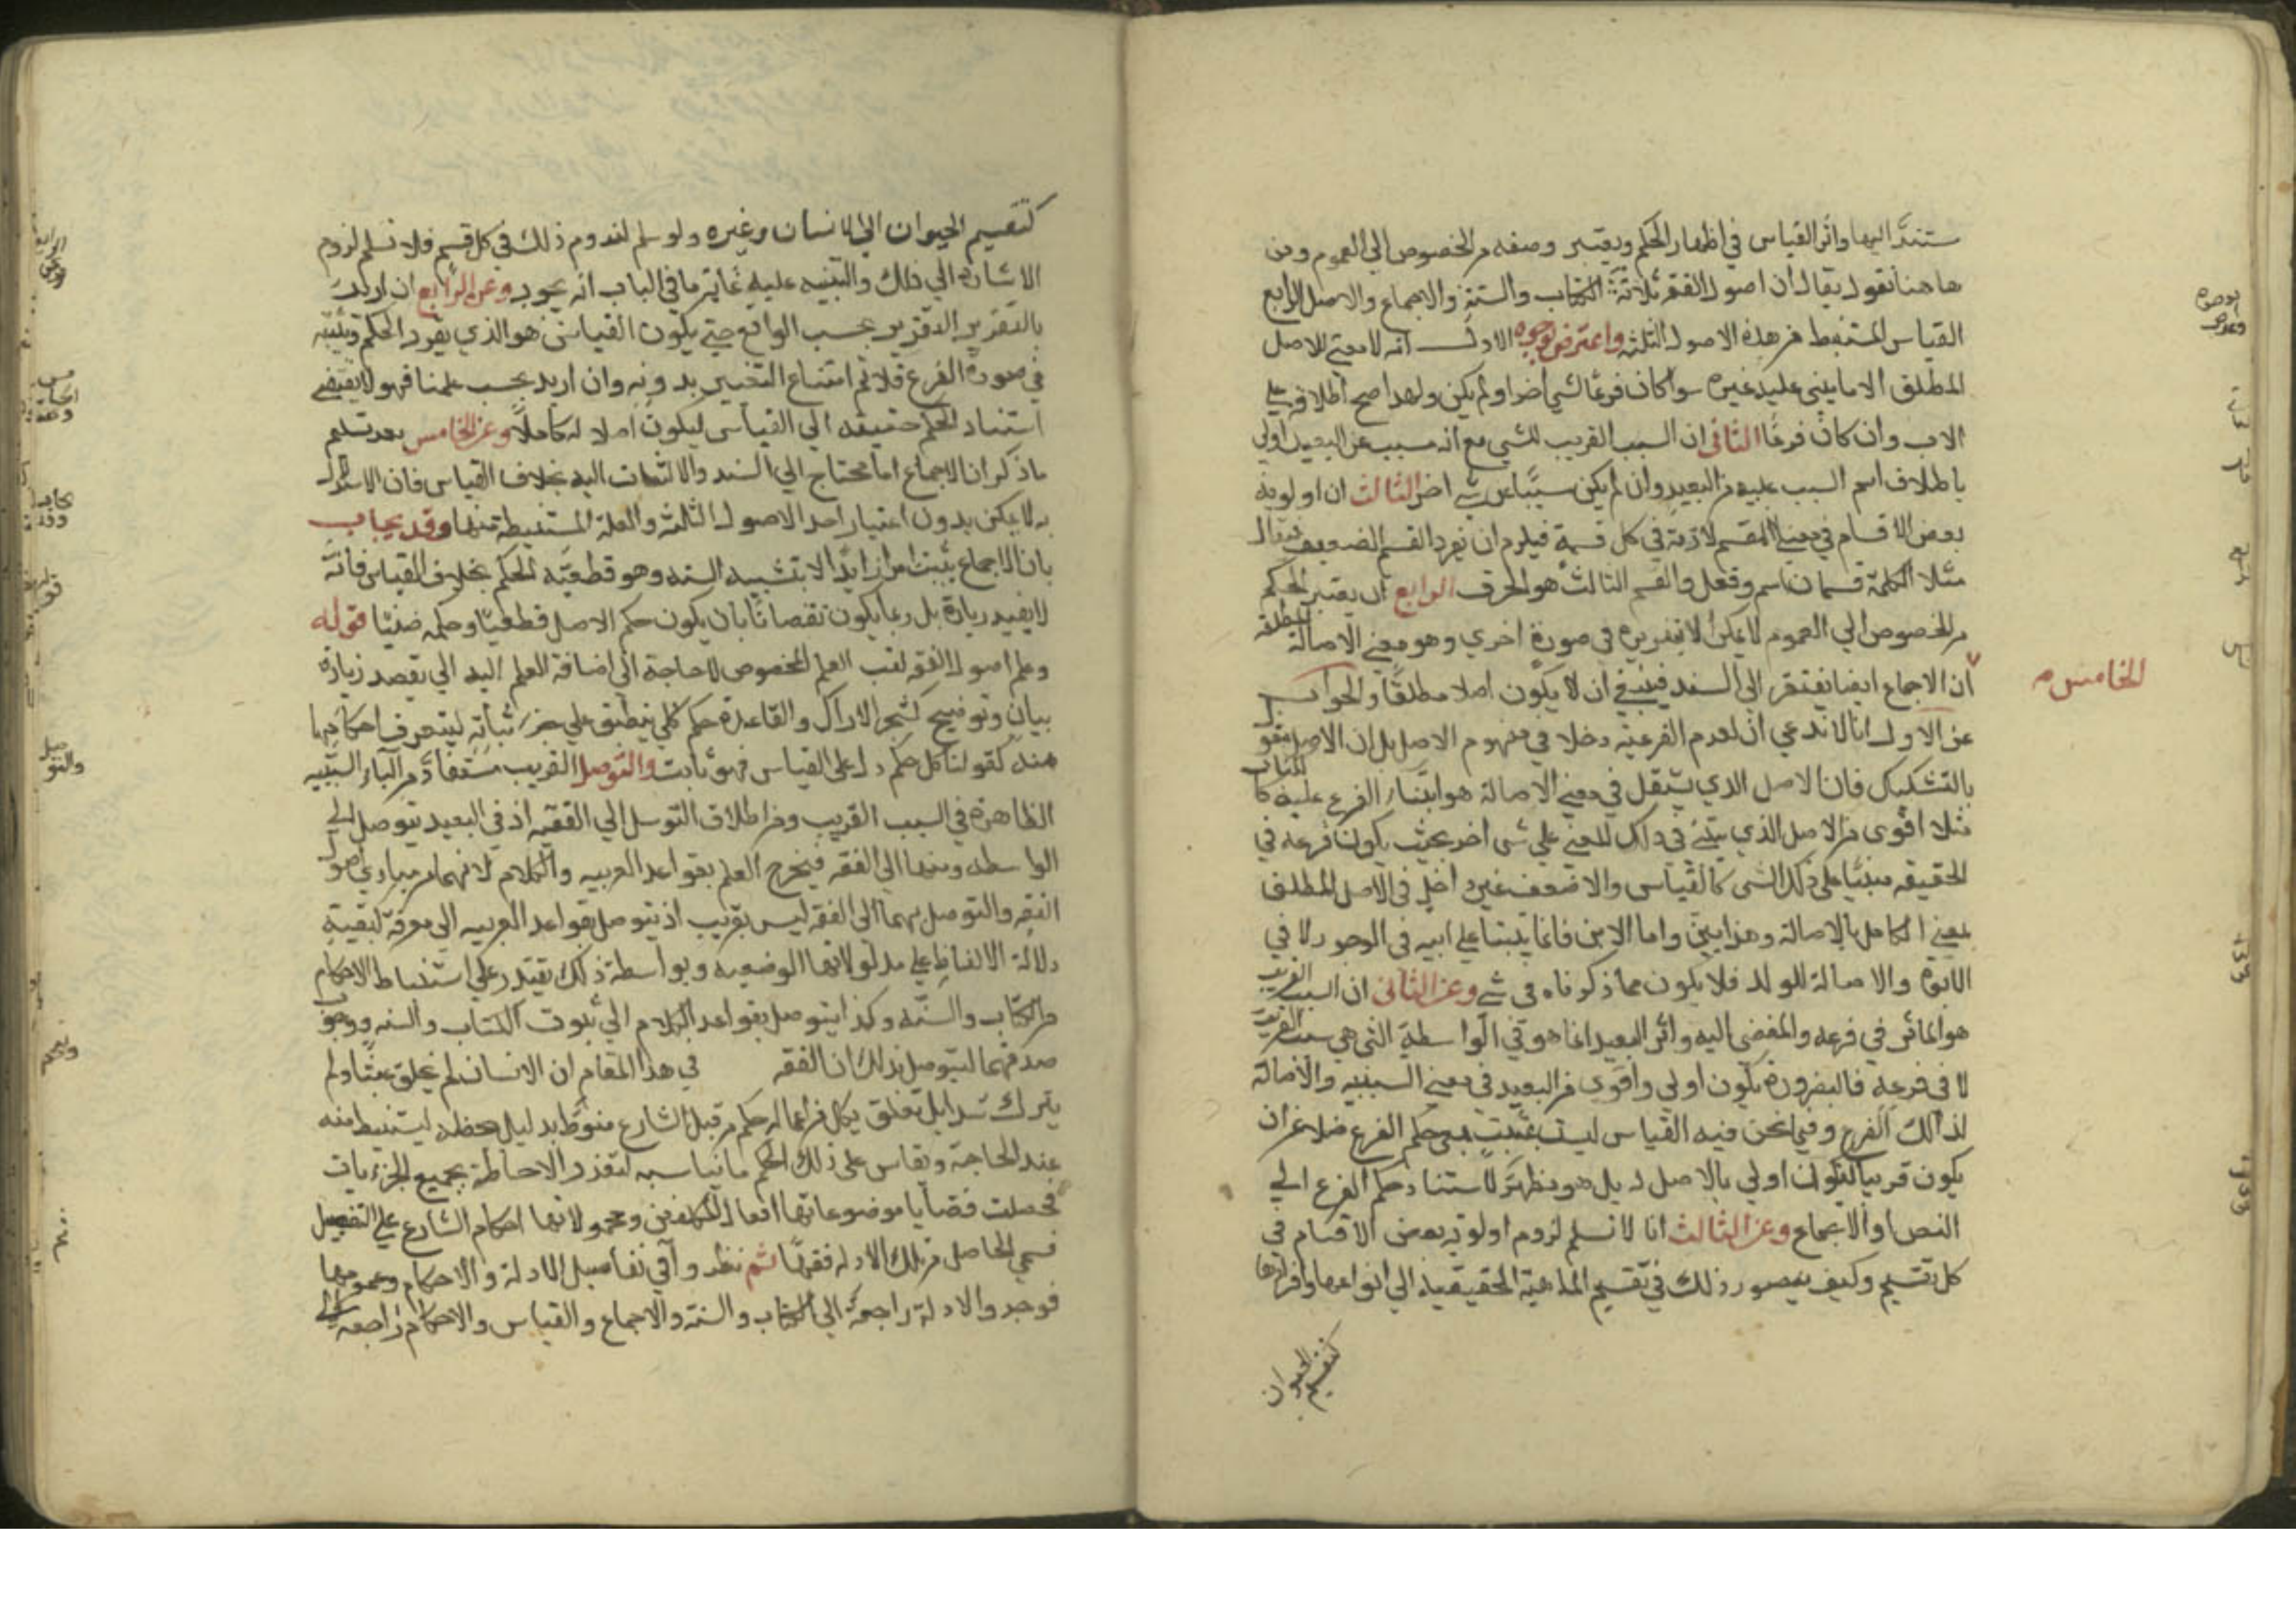 ستندَّ اليها واثر القياس في اظهار الحكم وبغتير وصفه من الخصوص الي العموم ومن
هاهنا نقول يقال ان اصول الفقه ثلاثة الكتاب والسنة والاجماع والاصل الرابع
القياس المستنبط من هذه الاصول الثلثه واعترض بوجوه الاول انه لا معني للاصل
المطلق الا ما يبني عليه غيره سوا كان فرعا لشي اخر او لم يكن ولهذا صح اطلاقه علي
الاب وان كان فرعًا الثاني ان السبب القريب للشي مع انه مسبب عن البعيد اولي
باطلاق اسم السبب عليه من البعيد وان لم يكن سببًا عن شي اخر الثالث ان اولوية
بعض الاقسام في معني المقسم لازمة في كل قسمة فيلزم ان يفرد القسم الضعيف فيقال
مثلا الكلمة قسمان اسم وفعل والقسم الثالث هو الحرف الرابع ان يغتير الحكم
من الخصوص الي العموم لا يمكن الا بتقريره في صورة اخري وهو معني الاصالة المطلقة
ان الاجماع ايضا يفتقر الي السند فينبغي ان لا يكون اصلا مطلقًا والجواب
الخامس
عن الاول انا لا ندعي ان لعدم الفرعية دخلا في مفهوم الاصل بل ان الاصل مقول
بالتشكيك فان الاصل الذي يستقل في معني الاصالة هو ابتناء الفرع عليه كالكتاب
مثلا اقوى من الاصل الذي يبتني في ذلك المعني علي شي اخر بحيث يكون فرعه في
الحقيقه مبنيا علي ذلك الشي كالقياس والاضعف غير داخل في الاصل المطلق
بمعني الكامل بالاصالة وهذا بيّن واما الابن فانما يبتنا علي ابيه في الوجود لا في
الابوة والاصالة للولد فلا يكون مما ذكرناه في شي وعن الثاني ان السبب القريب
هو الماثر في فرعه والمفضي اليه واثر البعيد انما هو في الواسطة التي هي سبب القريب
لا في فرعه فبالضرورة يكون اولي واقوي من البعيد في معني السببيه والاصالة
لذالك الفرع وفيما نحن فيه القياس ليس بمثبت حكم الفرع فضلا عن ان
يكون قريبا ليكون اولي بالاصل له بل هو مظهر لاستناد حكم الفرع الي
النص او الاجماع وعن الثالث انا لا نسلم لزوم اولوية بعض الاقسام في
كل تقسيم وكيف يتصور ذلك في تقسيم الماهية الحقيقيه الي انواعها وافرادها
كتقسيم الحيوان
كتقسيم الحيوان الي الانسان وغيره ولو سلم لندوم ذلك في كل قسم فلا نسلم لزوم
الاشارة الي ذلك والتنبيه عليه غاية ما في الباب انه يجوز وعن الرابع ان اريد
بالتقرير التقرير بحسب الواقع حتي يكون القياس هو الذي يقرر الحكم ويثبته
في صورة الفرع فلا نم امتناع التغيير بدونه وان اريد بحسب علمنا فهو لا يقتضي
استناد الحكم حقيقه الي القياس ليكون اصلا له كاملًا وعن الخامس بعد تسليم
ما ذكر ان الاجماع انما محتاج الي السند والالتفات اليه بخلاف القياس فان الاستدلال
به لا يمكن بدون اعتبار احد الاصول الثلثه والعلة المستنبطة منها وقد يجاب
بان الاجماع يثبت امرا زايدًا لا يثبته السند وهو قطعيّة الحكم بخلاف القياس فانه
لا يفيد زيادة بل ربما يكون نقصانًا بان يكون حكم الاصل قطعيًا وحكمه ظنيًا قوله
وعلم اصول الفقه لقب العلم المخصوص لا حاجة الي اضافة العلم اليه الي بقصد زيادة
بيان وتوضيح كشجر الاراك والقاعدة حكم كلي ينطبق علي جزئياته ليتعرف احكامها
منه كقولنا كل حكم دل علي القياس فهو ثابت والتوصل القريب مستفاد من الباء السببيه
الظاهرة في السبب القريب ومن اطلاق التوسل الي الفقه اذ في البعيد يتوصل الي
الواسطه ومنها الي الفقه فيخرج العلم بقواعد العربيه والكلام لانهما من مبادي اصول
الفقه والتوصل بهما الي الفقه ليس بقريب اذ يتوصل بقواعد العربيه الي معرفة كيفية
دلالة الالفاظ علي مدلولاتها الوضعيه وبواسطة ذلك يقتدر علي استنباط الاحكام
من الكتاب والسنه وكذا يتوصل بقواعد الكلام الي ثبوت الكتاب والسنه ووجوب
صدقهما ليتوصل بذلك ان الفقه في هذا المقام ان الانسان لم يخلق عبثًا ولم
يترك سدا بل تعلق بكل من اعماله حكم من قبل الشارع منوط بدليل يخصه ليستنبط منه
عند الحاجة ويقاس علي ذلك الحكم ما يناسبه لتعذر الاحاطة بجميع الجزءيات
فحصلت قضايا موضوعاتها افعال المكلفين ومحمولاتها احكام الشارع علي التفصيل
فسمي الحاصل من تلك الادله فقهًا ثم نظروا في تفاصيل الادلة والاحكام وعمومها
فوجدوا الادلة راجعة الي الكتاب والسنة والاجماع والقياس والاحكام راجعه الي